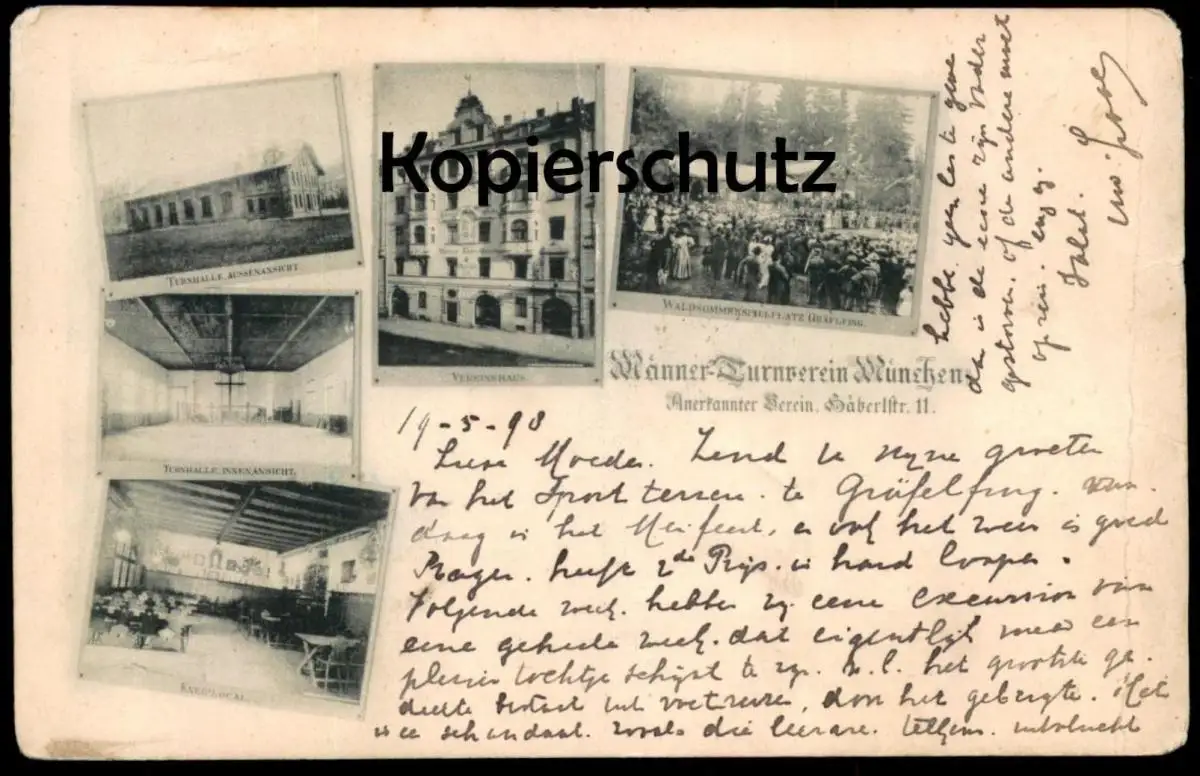 Kopierschutz
TURNHALLE, AUSSENANSICHT
VEREINSHAUS
WALDSOMMERSPIELPLATZ GRÄFLFING.
TURNHALLE, INNENANSICHT.
KNEIPLOCAL
Männer-Turnverein München
Anerkannter Verein, Häberlstr. 11.
19-5-98
Lieve Moeder. Zend U mijne groeten
van het Sport terrein te Gräfelfing. van-
daag is het Meifeest, en ook het weer is goed
heeft 2de Prijs in hard loopen.
Volgende week hebben wij eene excursion van
eene geheele week. dat eigentlijk meer een
plezier tochtje schijnt te zijn. n.l. het grootste ge-
deelte bestaat uit voetreizen, door het gebergte. Het
is een schandaal. zooals die leeraren telkens
hebbe geen les te geven
da is de eene zijn Vader
gestorven. of de andere moet
op reis. enz.